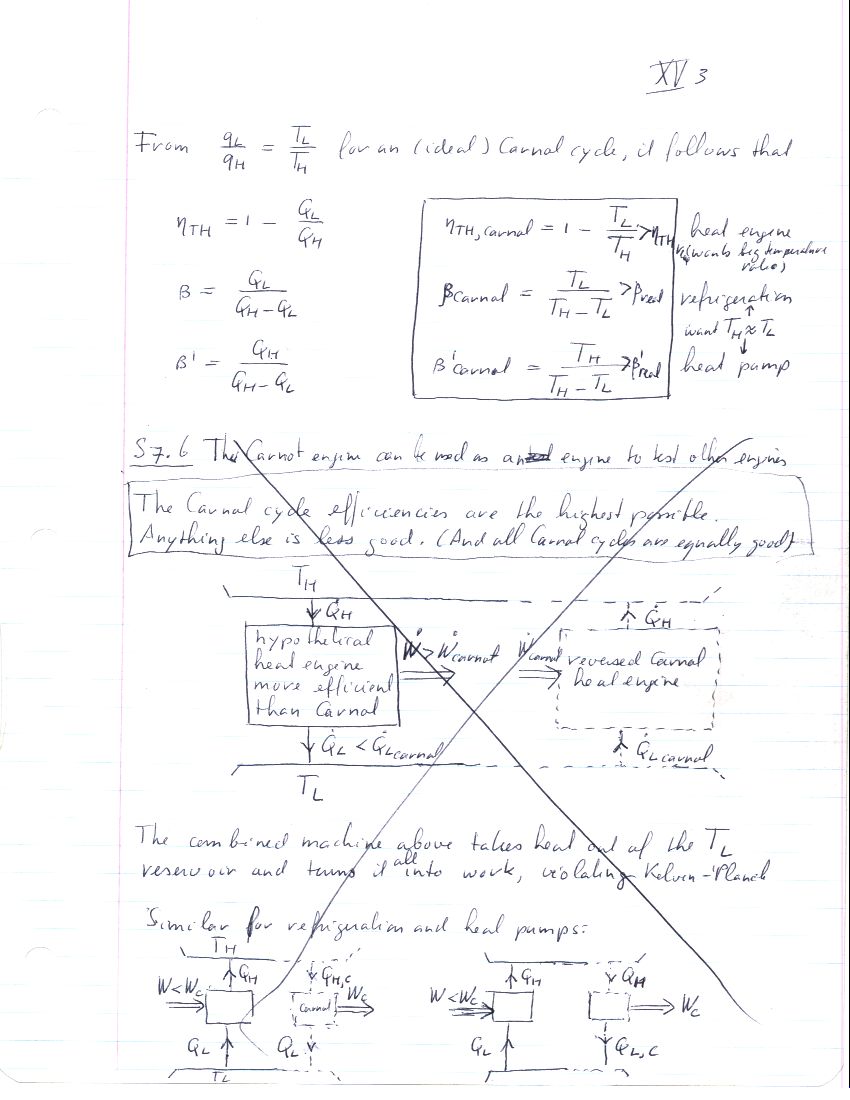 XV 3
From qL/qH = TL/TH for an (ideal) Carnot cycle, it follows that
ηTH = 1 - QL/QH
ηTH, carnot = 1 - TL/TH > ηTH
heat engine
(wants big temperature
ratio)
β = QL/(QH-QL)
βcarnot = TL/(TH-TL) > βreal
refrigeration
↑
want TH ≈ TL
↓
β' = QH/(QH-QL)
β'carnot = TH/(TH-TL) > β'real
heat pump
S7.6 The Carnot engine can be used as an engine to test other engines
The Carnot cycle efficiencies are the highest possible.
Anything else is less good. (And all Carnot cycles are equally good)
TH
Q̇H
Q̇H
hypothetical
heat engine
more efficient
than Carnot
Ẇ > Ẇcarnot
Ẇcarnot
reversed Carnot
heat engine
Q̇L < Q̇Lcarnot
Q̇L carnot
TL
The combined machine above takes heat out of the TL
reservoir and turns it all into work, violating Kelvin-Planck
Similar for refrigeration and heat pumps:
TH
QH
QH,C
QH
QH
W<Wc
Carnot
Wc
W<Wc
Wc
QL
QL
QL
QL,C
TL